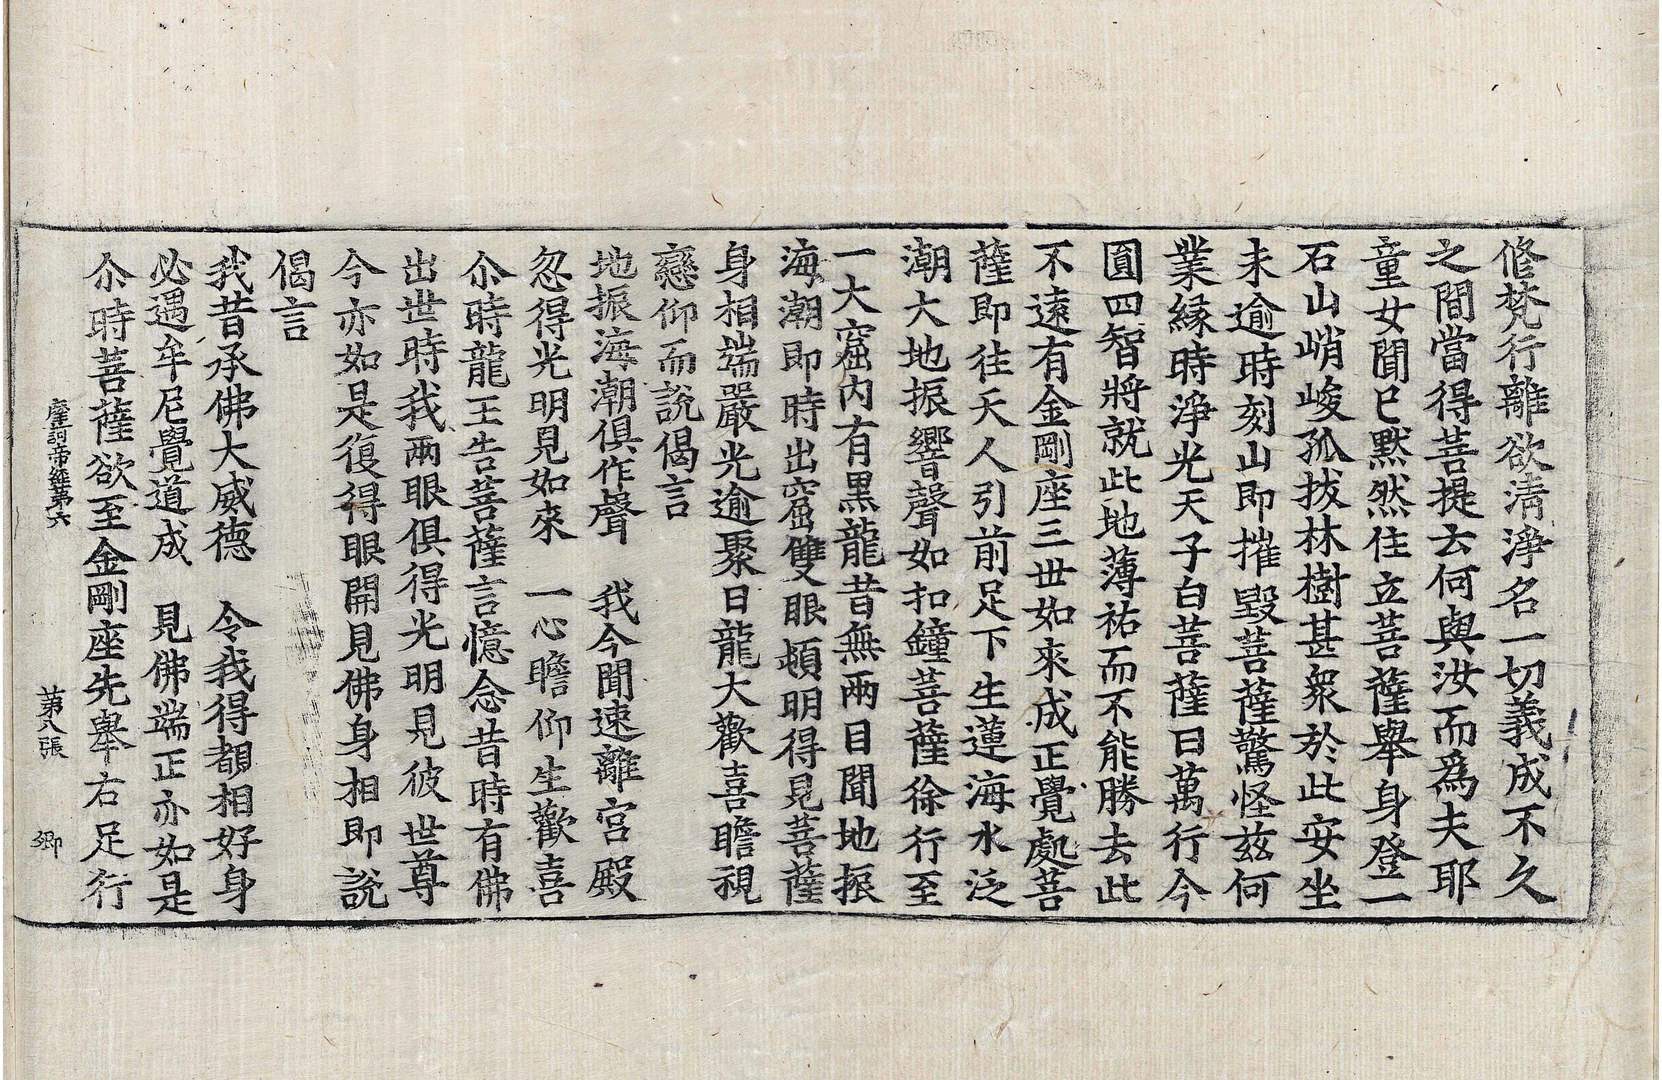 修梵行離欲清淨名一切義成不久
之間當得菩提去何與汝而為夫耶
童女聞已默然住立菩薩舉身登一
石山峭峻孤拔林樹甚衆於此安坐
未逾時刻山即摧毀菩薩驚怪茲何
業緣時淨光天子白菩薩曰萬行今
圓四智將就此地薄祐而不能勝去此
不遠有金剛座三世如來成正覺處菩
薩即往天人引前足下生蓮海水泛
潮大地振響聲如扣鐘菩薩徐行至
一大窟內有黑龍昔無兩目聞地振
海潮即時出窟雙眼頓明得見菩薩
身相端嚴光逾聚日龍大歡喜瞻視
戀仰而說偈言
地振海潮俱作聲　我今聞速離宮殿
忽得光明見如來　一心瞻仰生歡喜
尒時龍王告菩薩言憶念昔時有佛
出世時我兩眼俱得光明見彼世尊
今亦如是復得眼開見佛身相即說
偈言
我昔承佛大威德　令我得覩相好身
必遇牟尼覺道成　見佛端正亦如是
尒時菩薩欲至金剛座先舉右足行
摩訶帝經第六　第八張　鄉